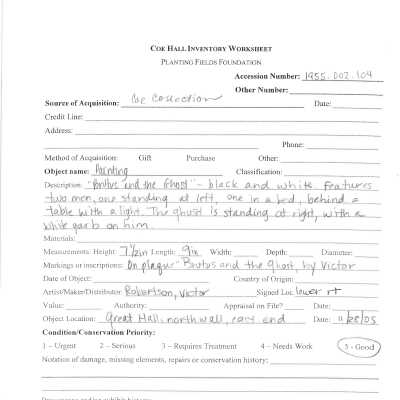 COE HALL INVENTORY WORKSHEET
PLANTING FIELDS FOUNDATION
Accession Number: 1955.002.104
Other Number:
Source of Acquisition: Coe Collection Date:
Credit Line:
Address:
Phone:
Method of Acquisition: Gift Purchase Other:
Object name: Painting Classification:
Description: "Brutus and the Ghost" - black and white. Features
two men, one standing at left, one in a bed, behind a
table with a light. The ghost is standing at right, with a
white garb on him.
Materials:
Measurements: Height: 7 1/2in Length: 9in Width: Depth: Diameter:
Markings or inscriptions: On plaque "Brutus and the Ghost, by Victor
Date of Object: Country of Origin:
Artist/Maker/Distributor: Robertson, Victor Signed Loc lower rt
Value: Authority: Appraisal on File? Date:
Object Location: Great Hall, north wall, east end Date: 11/28/05
Condition/Conservation Priority:
1 – Urgent 2 – Serious 3 – Requires Treatment 4 – Needs Work 5 - Good
Notation of damage, missing elements, repairs or conservation history: